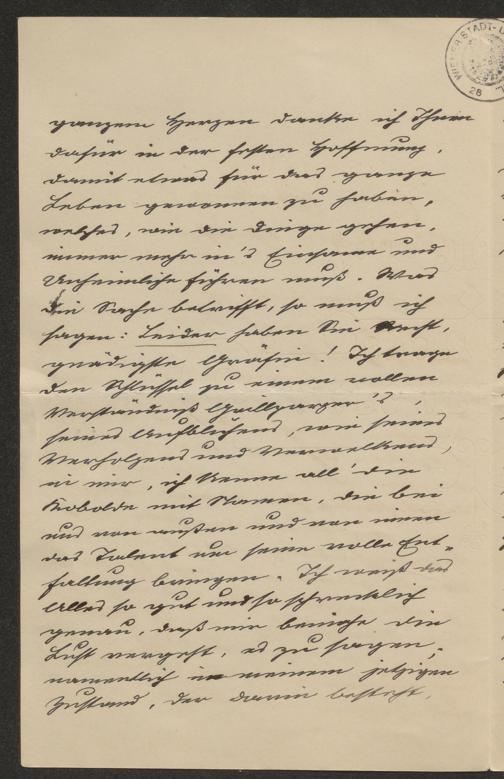 WIENER STADT-
28
ganzem Herzen danke ich Ihnen
dafür in der festen Hoffnung,
damit etwas für das ganze
Leben gewonnen zu haben,
welches, wie die Dinge gehen,
immer mehr in's Einsame und
Unheimliche führen muß. Was
die Sache betrifft, so muß ich
sagen: Leider haben Sie Recht,
gnädigste Gräfin! Ich trage
den Schlüssel zu einem vollen
Verständniß Grillparzer's,
seines Aufblühens, wie seines
und Verwelkens,
in mir, ich kenne all' die
Kobolde mit Namen, die bei
uns von außen und von innen
das Talent um seine volle Ent-
faltung bringen. Ich weiß das
Alles so gut und so schrecklich
genau, daß mir beinahe die
Lust vergeht, es zu sagen,
namentlich in meinem jetzigen
Zustand, der darin besteht,